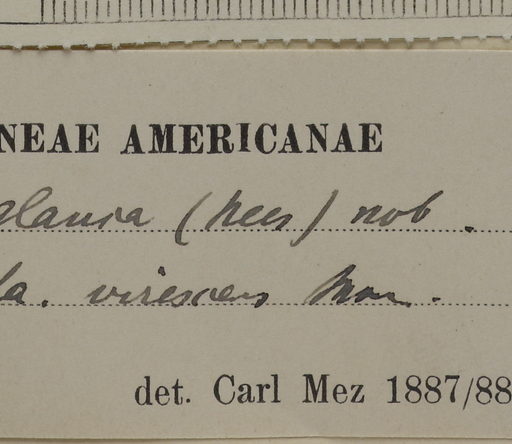 NEAE AMERICANAE
glauca (Nees) nob.
virescens
det. Carl Mez 1887/88